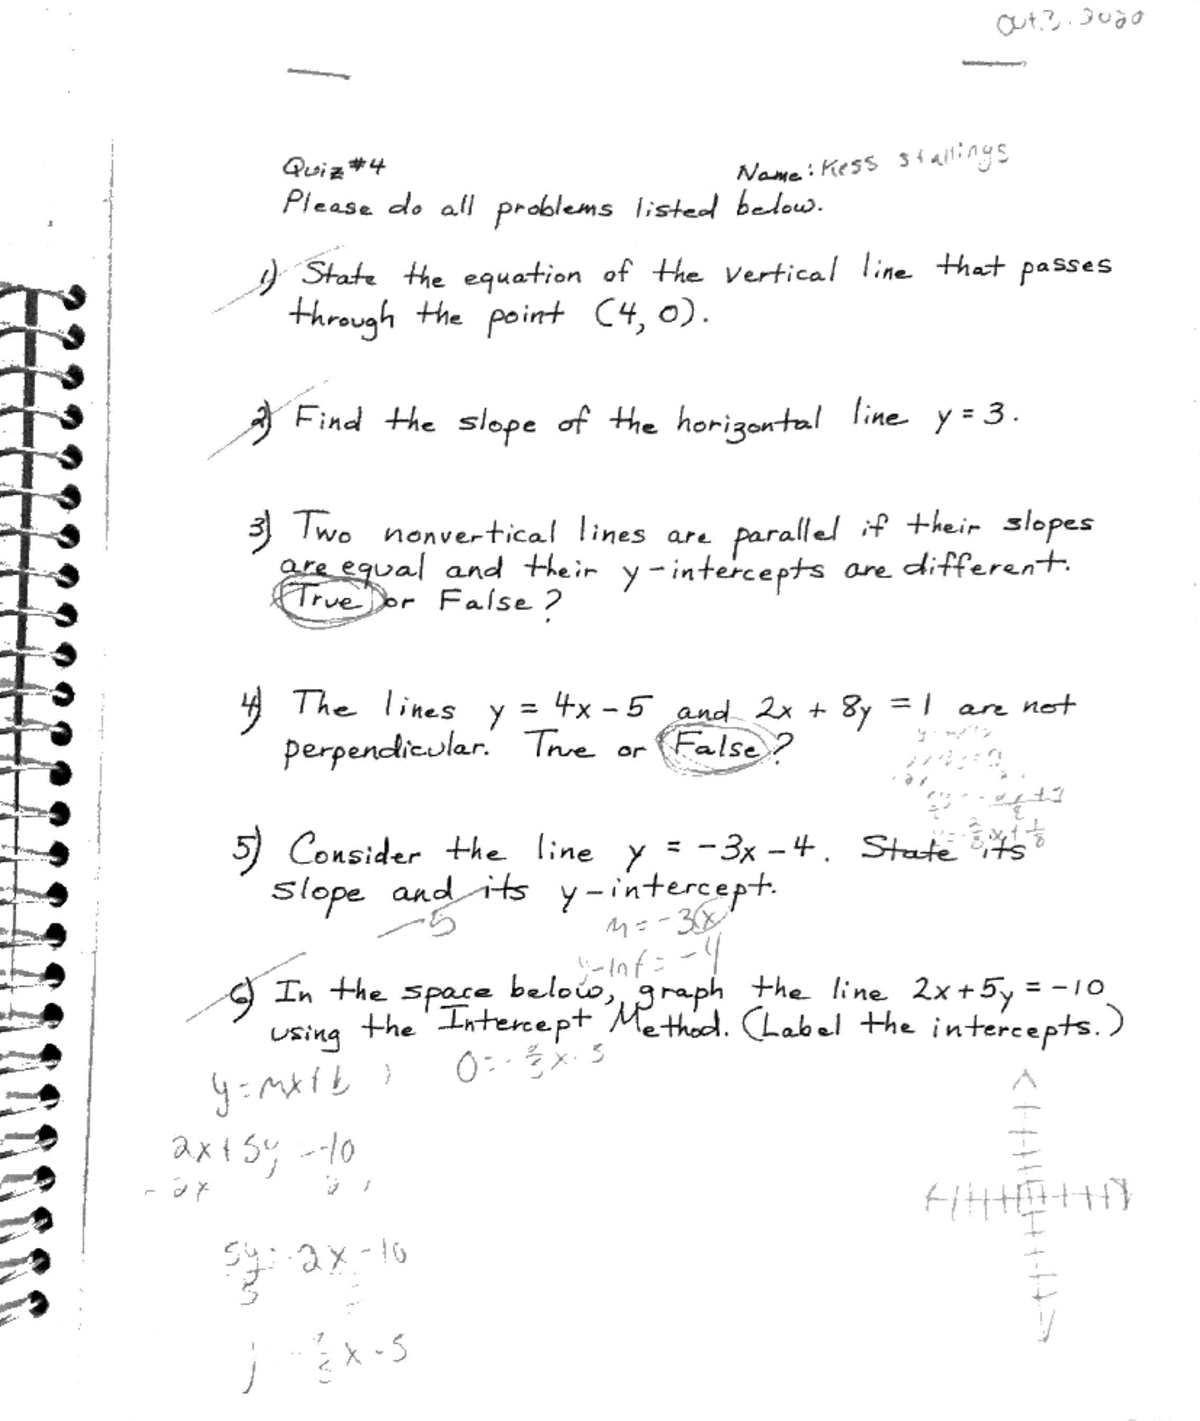 Oct. 3. 2020
Quiz #4
Name: Kess Stallings
Please do all problems listed below.
1) State the equation of the vertical line that passes
through the point (4, 0).
2) Find the slope of the horizontal line y = 3.
3) Two nonvertical lines are parallel if their slopes
are equal and their y-intercepts are different.
True or False?
4) The lines y = 4x - 5 and 2x + 8y = 1 are not
perpendicular. True or False?
5) Consider the line y = -3x - 4. State its
slope and its y-intercept.
-5
m = -3x
y-int = -4
6) In the space below, graph the line 2x + 5y = -10
using the Intercept Method. (Label the intercepts.)
y = mx + b
2x + 5y -10
-2x
5y = -2x - 10
5
x - 5